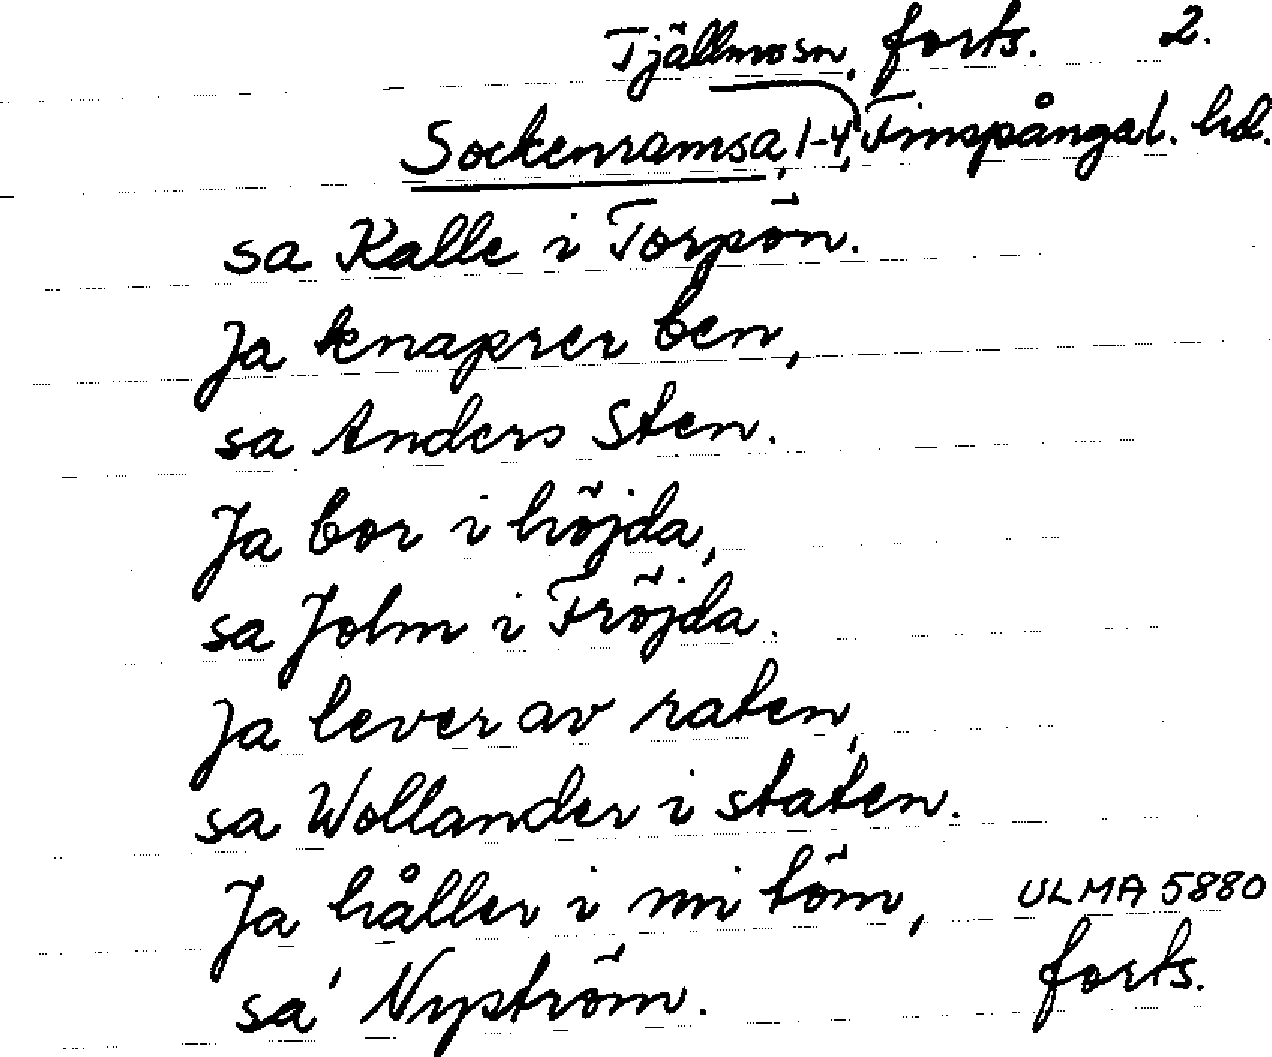 Tjällmo sn, forts. 2.
Sockenramsa, 1-4, Finspånga l. hd.
sa Kalle i Torpön.
Ja knaprer ben,
sa Anders Sten.
Ja bor i höjda,
sa John i Fröjda.
Ja lever av raten,
sa Wollander i staten.
Ja håller i min töm, ULMA 5880
sa' Nyström. forts.